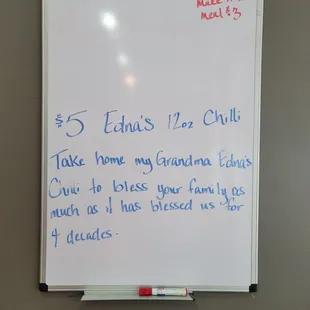 meal $3
$5 Edna's 12oz Chilli
Take home my Grandma Edna's
Chilli to bless your family as
much as it has blessed us for
4 decades.